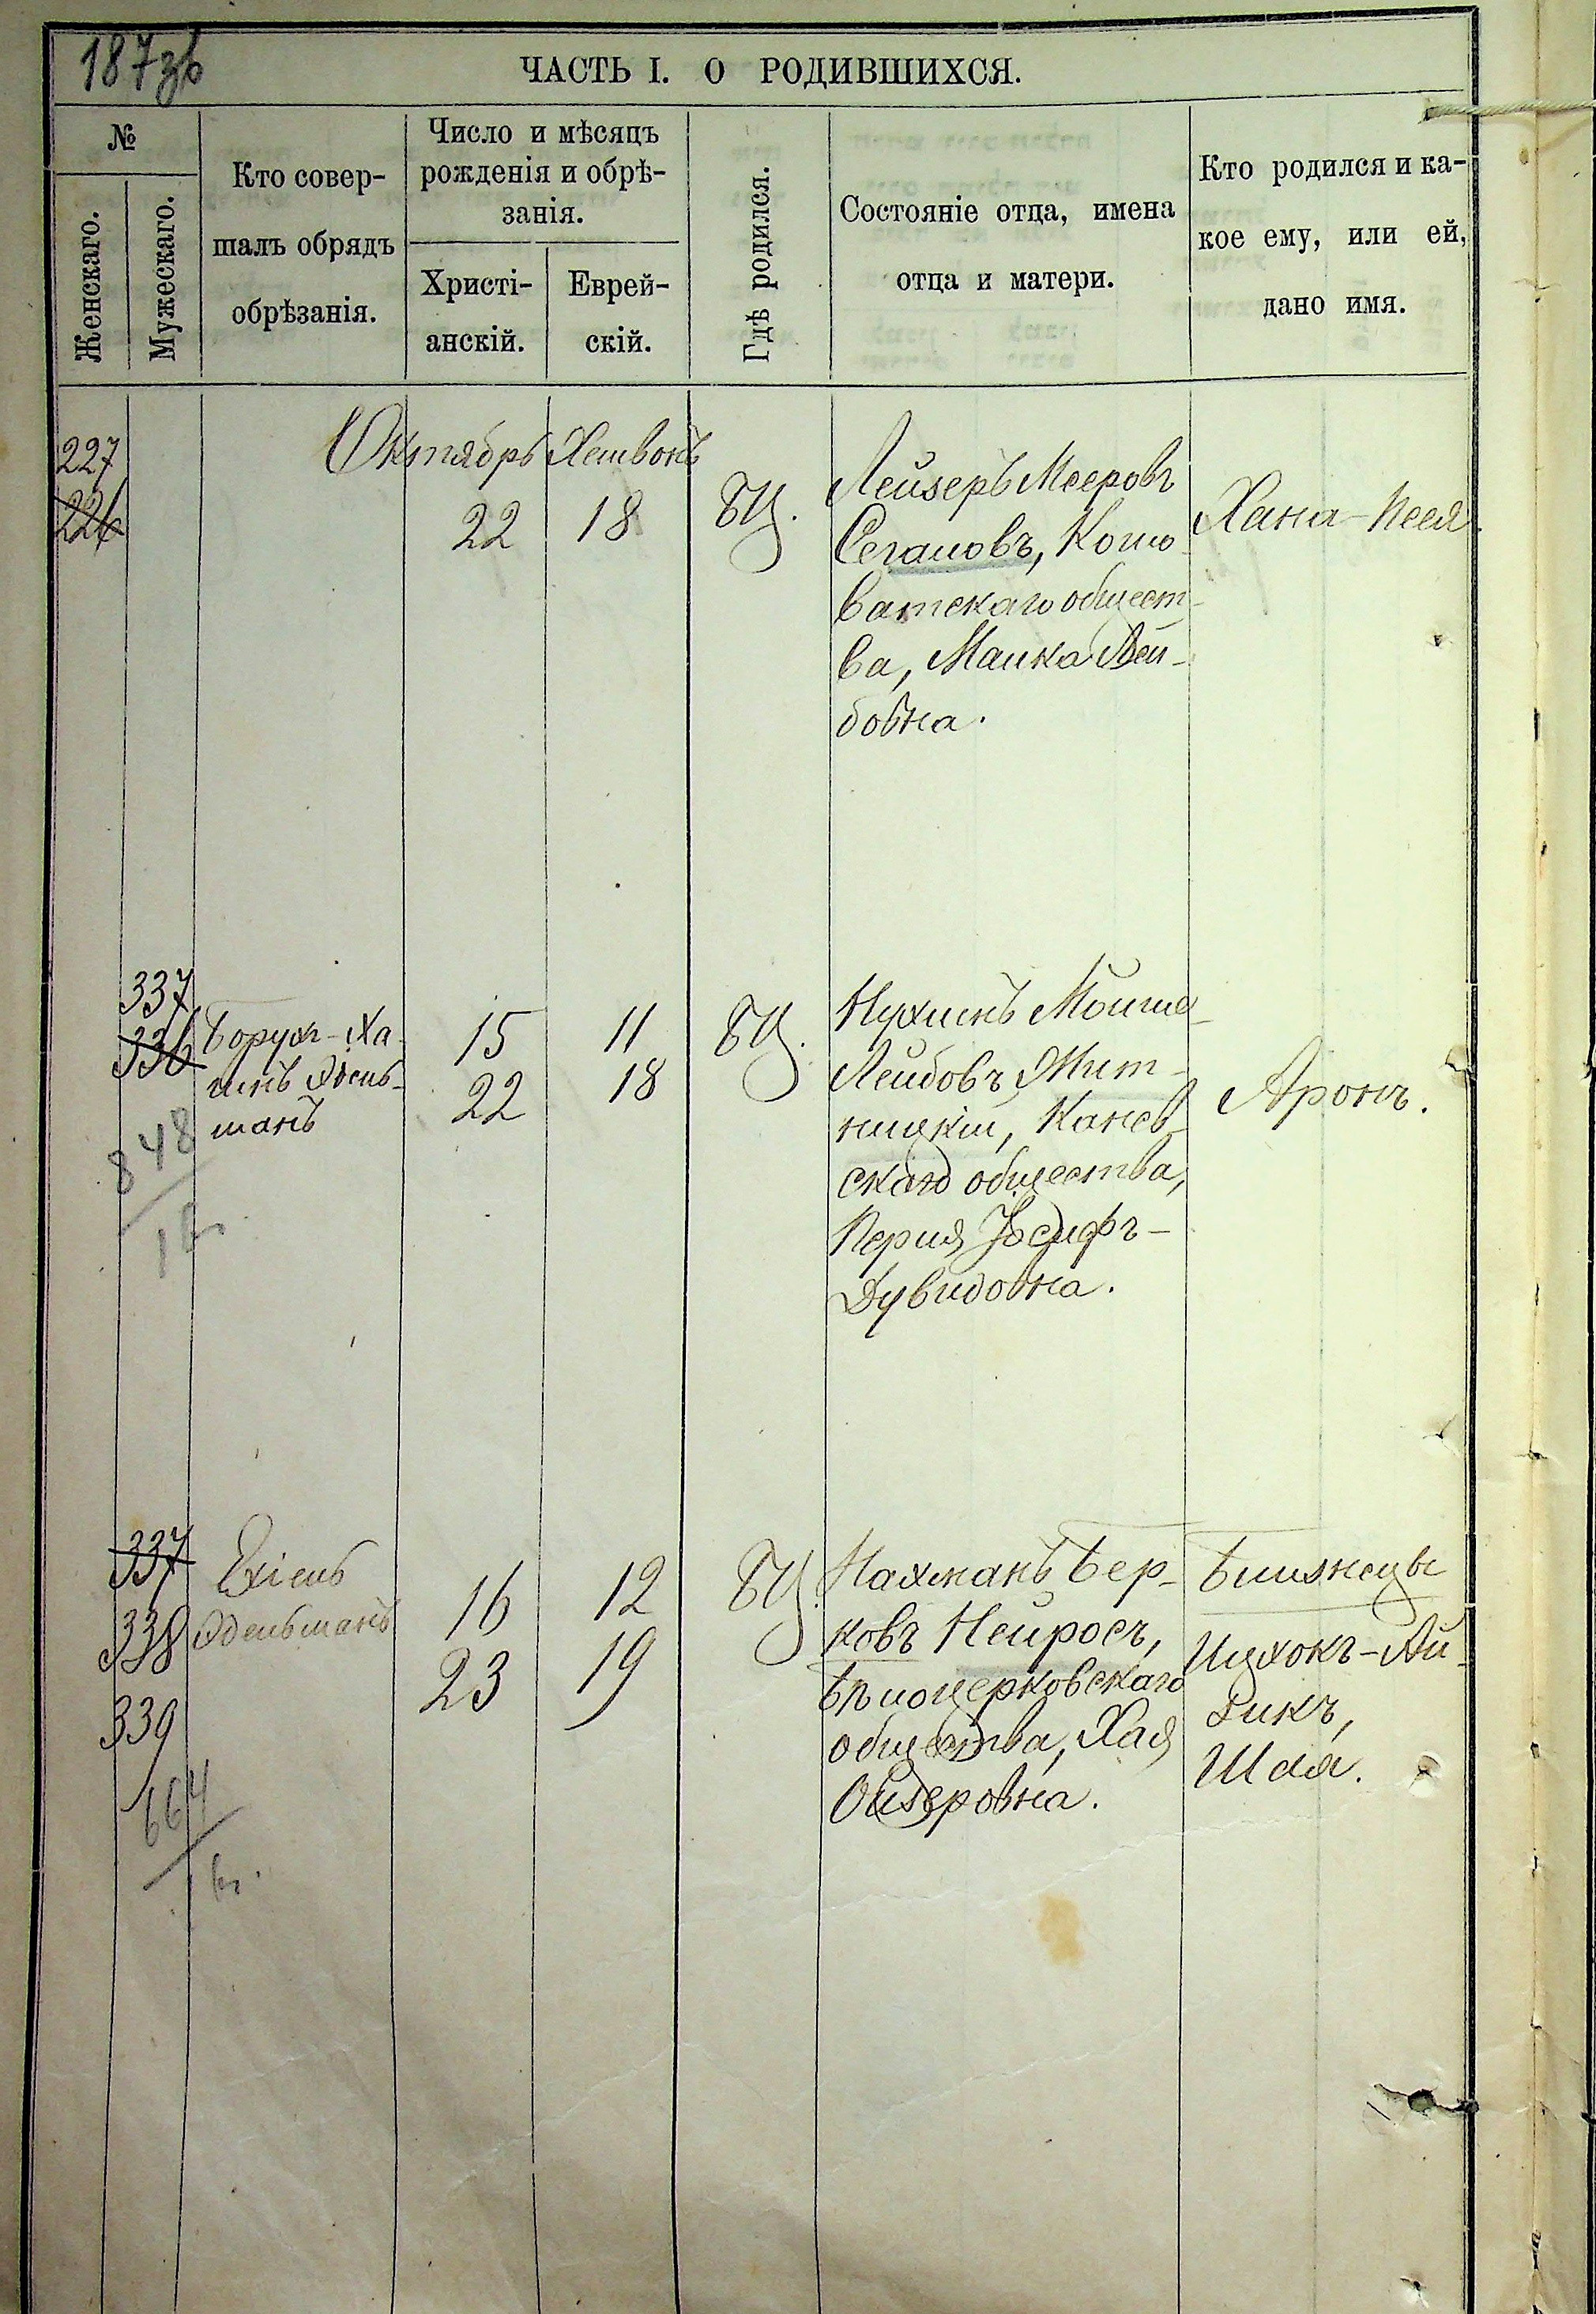 187зв
ЧАСТЬ I. О РОДИВШИХСЯ.
№
Женскаго.
Мужескаго.
Кто совер-
шалъ обрядъ
обрѣзанія.
Число и мѣсяцъ
рожденія и обрѣ-
занія.
Христі-
анскій.
Еврей-
скій.
Гдѣ родился.
Состояніе отца, имена
отца и матери.
Кто родился и ка-
кое ему, или ей,
дано имя.
Октябрь Хешвонъ
227
226
22
18
БЦ.
Лейзеръ Мееровъ
Сегаловъ, Кошо
ватскаго общест-
ва, Малка Лей-
бовна.
Хана-Песя.
337
336
848
Борухъ-Ха-
имъ Эдель-
манъ
15
22
11
18
БЦ.
Нухимъ Мошко-
Лейбовъ Жит-
ницкій, Канев-
скаго общества,
Перля Іосифъ-
Дувидовна.
Аронъ.
337
338
339
664
Ехіель
Эдельманъ
16
23
12
19
БЦ.
Нахманъ Бер-
ковъ Нейросъ,
Бѣлоцерковскаго
общества, Хая
Ойзеровна.
Близнецы
Ицхокъ-Ай-
зикъ,
Шая.